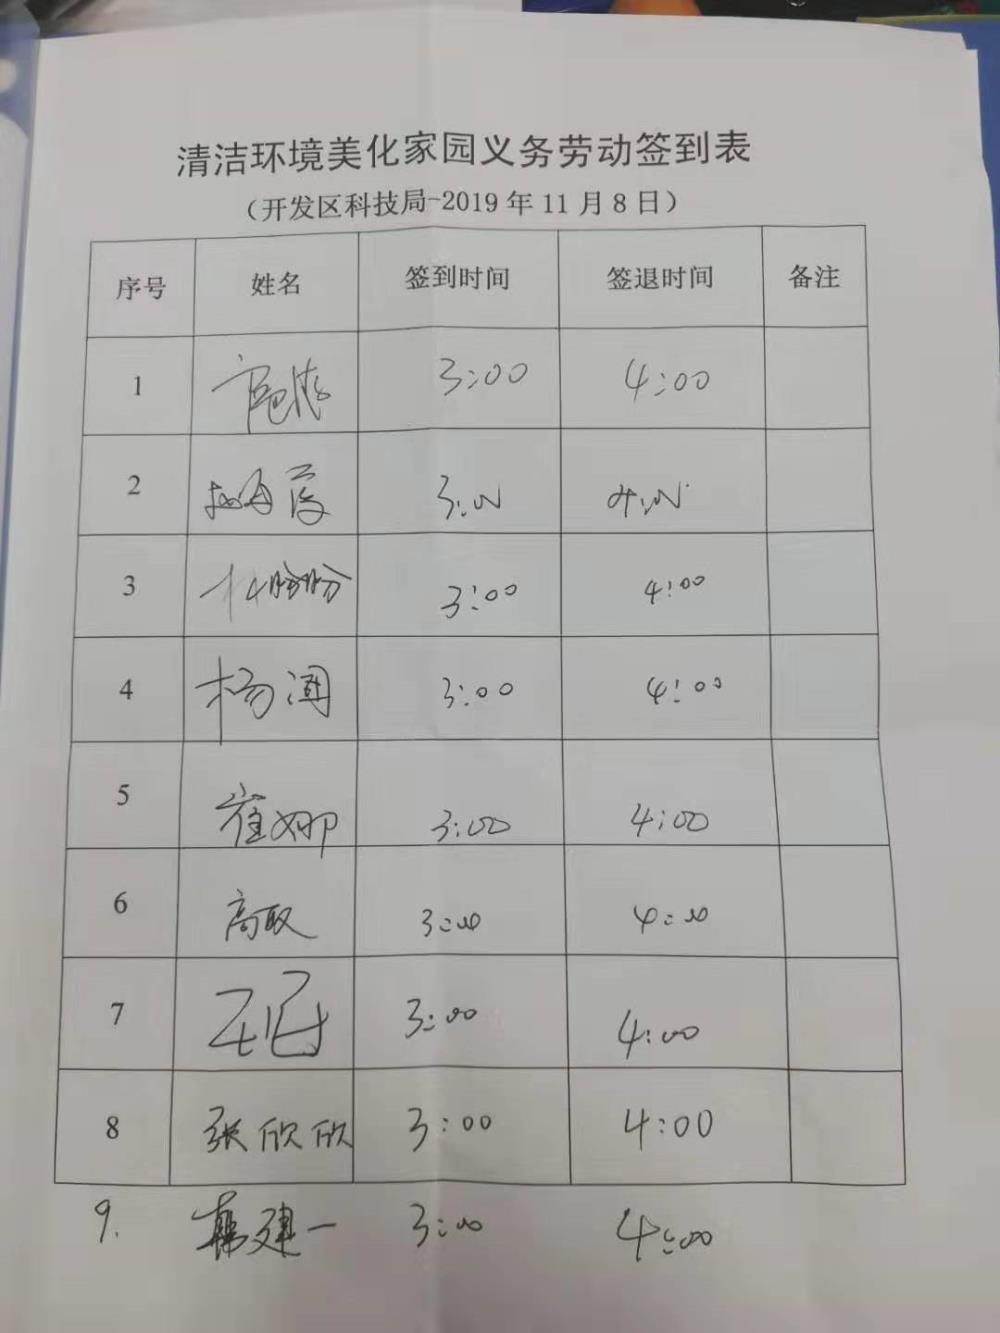 清洁环境美化家园义务劳动签到表
（开发区科技局-2019年11月8日）
序号 姓名 签到时间 签退时间 备注
1 3:00 4:00
2 3:00 4:00
3 杜盼盼 3:00 4:00
4 杨润 3:00 4:00
5 崔娜 3:00 4:00
6 高取 3:00 4:00
7 3:00 4:00
8 张欣欣 3:00 4:00
9. 韩建一 3:00 4:00